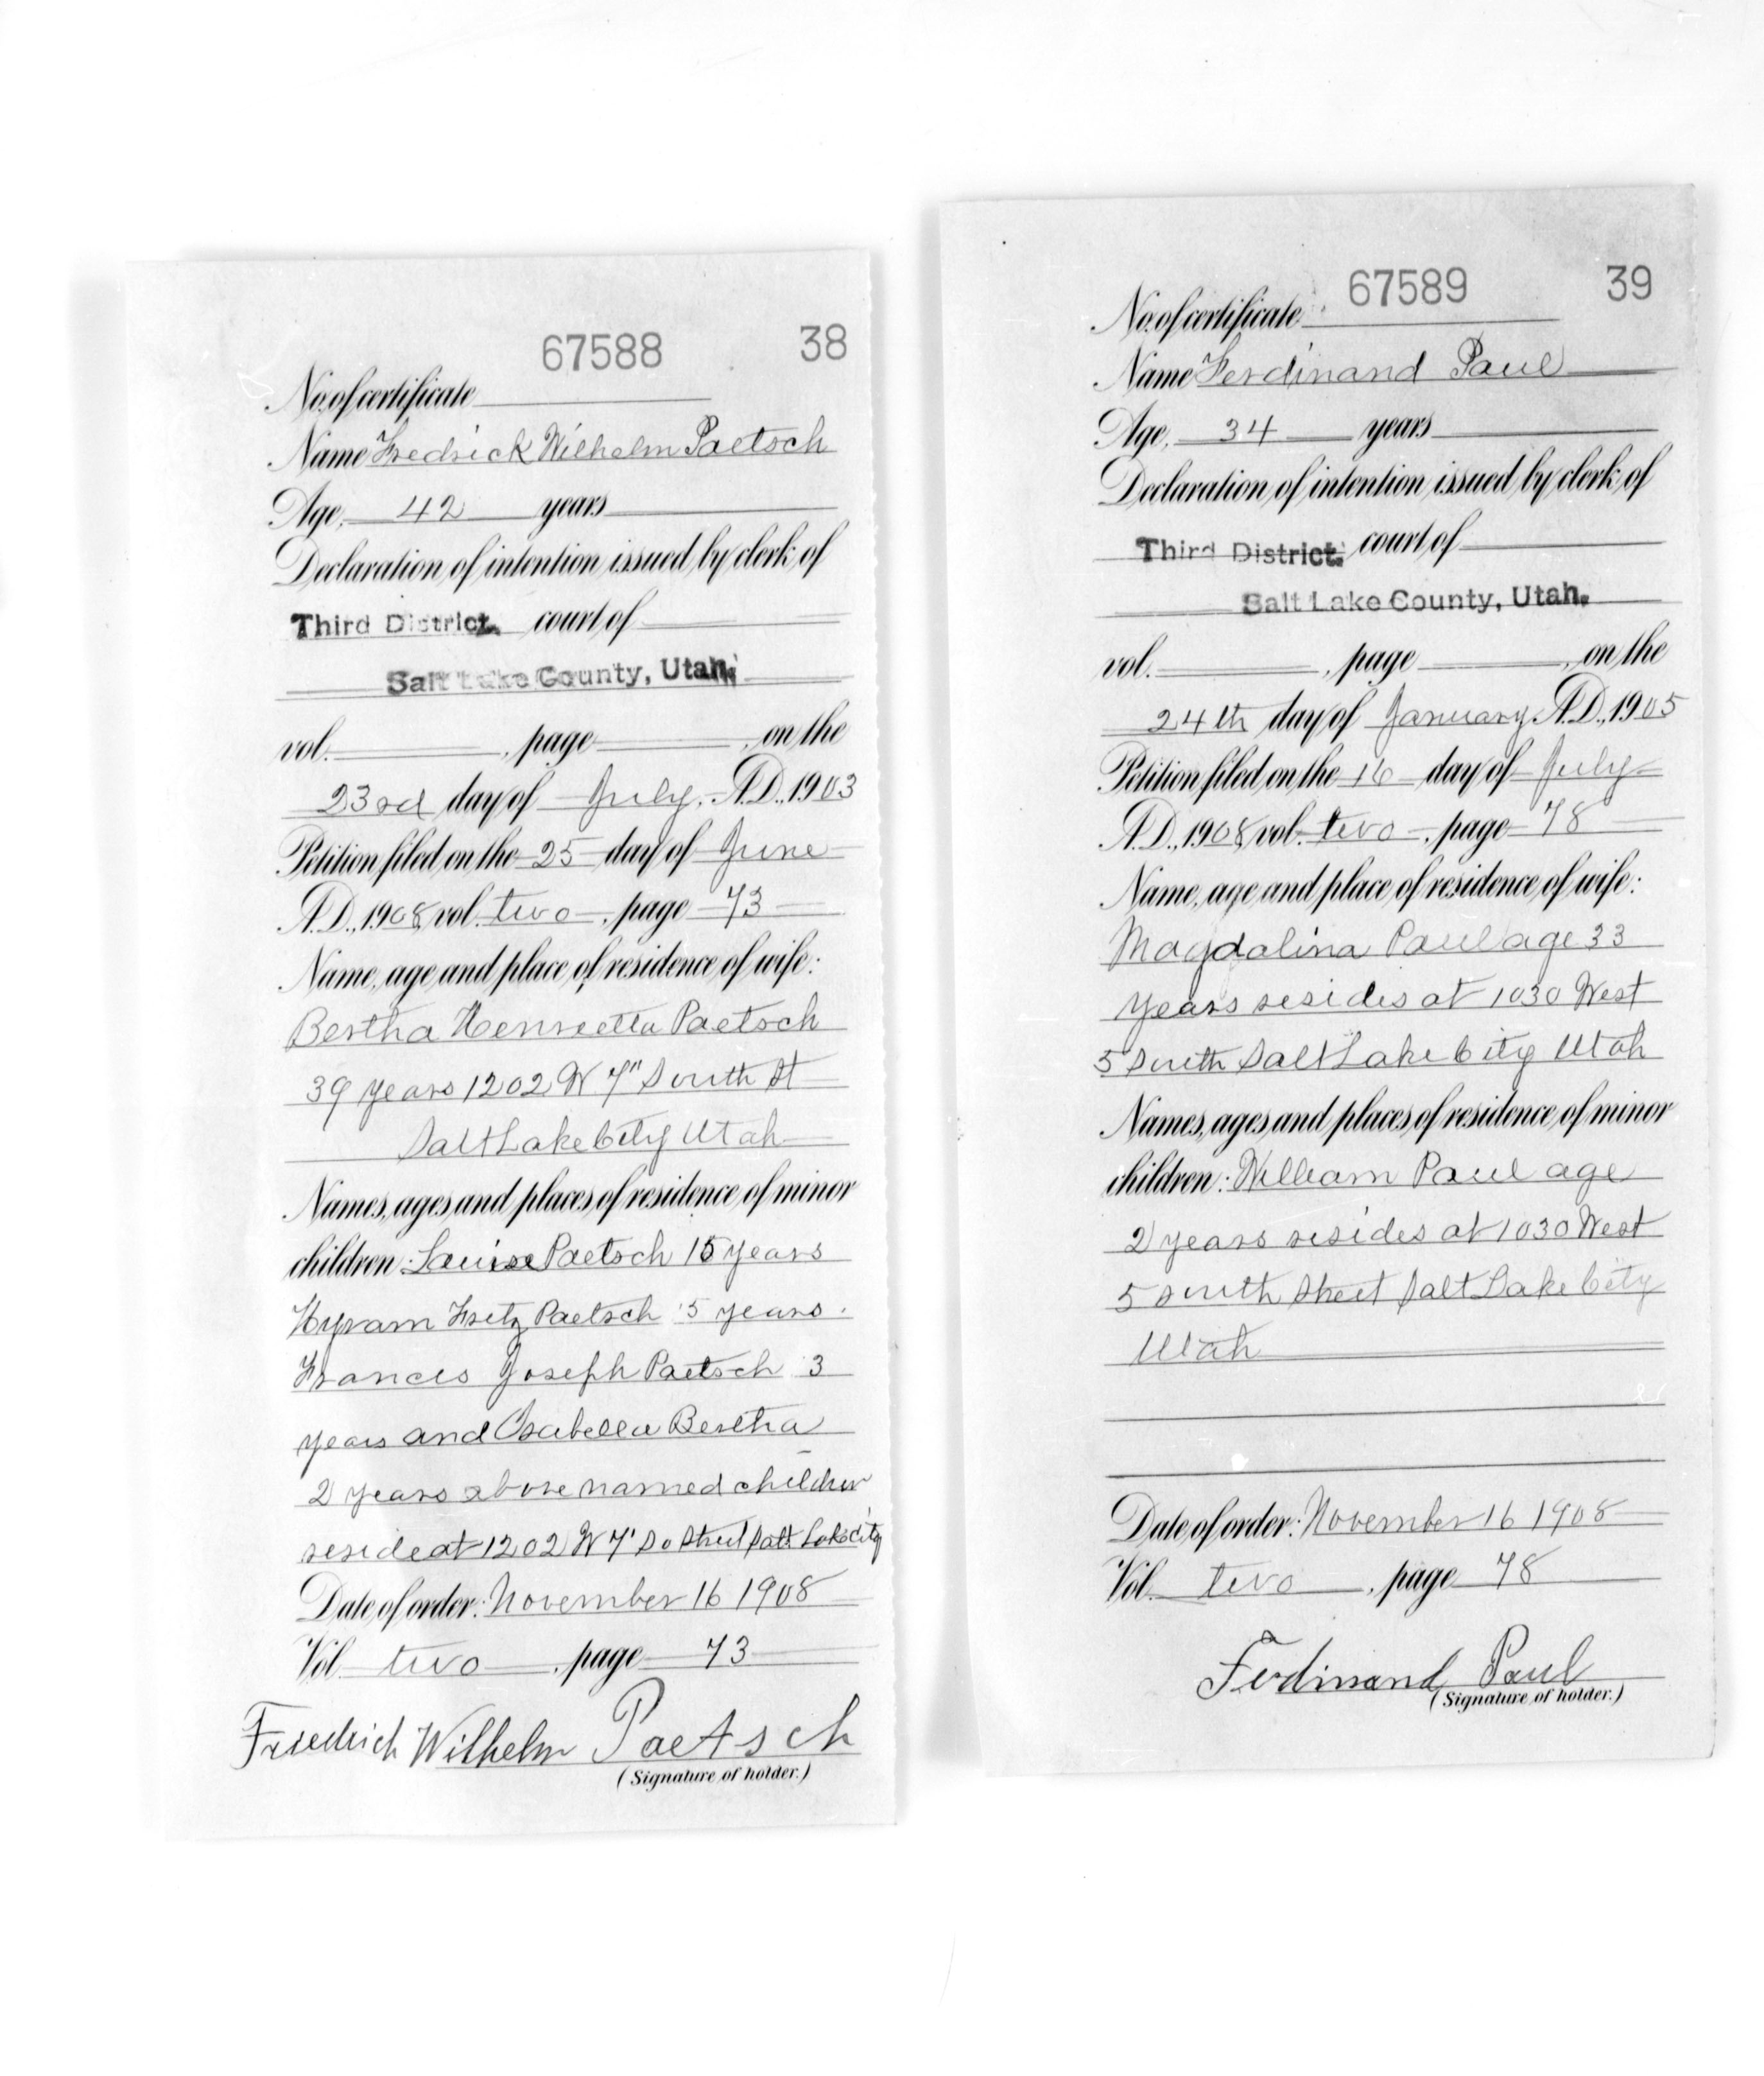 67588 38
No. of certificate
Name Fredrick Wilhelm Paetsch
Age, 42 years
Declaration of intention issued by clerk of
Third District. court of
Salt Lake County, Utah.
vol. , page , on the
23rd day of July, A.D., 1903
Petition filed on the 25 day of June
A.D., 1908, vol. two, page 73
Name, age and place of residence of wife:
Bertha Henrietta Paetsch
39 years 1202 W 7" South St
Salt Lake City Utah
Names, ages and places of residence of minor
children: Louise Paetsch 15 years
Hyram Fritz Paetsch 5 years.
Frances Joseph Paetsch 3
years and Isabella Bertha
2 years above named children
reside at 1202 W 7" So Street Salt Lake City
Date of order: November 16 1908
Vol. two, page 73
Friedrich Wilhelm Paetsch
(Signature of holder.)
67589 39
No. of certificate
Name Ferdinand Paul
Age, 34 years
Declaration of intention issued by clerk of
Third District. court of
Salt Lake County, Utah.
vol. , page , on the
24th day of January A.D., 1905
Petition filed on the 16 day of July
A.D., 1908, vol. two, page 78
Name, age and place of residence of wife:
Magdalina Paul age 33
years resides at 1030 West
5 South Salt Lake City Utah
Names, ages and places of residence of minor
children: William Paul age
2 years resides at 1030 West
5 South Street Salt Lake City
Utah
Date of order: November 16 1908
Vol. two, page 78
Ferdinand Paul
(Signature of holder.)